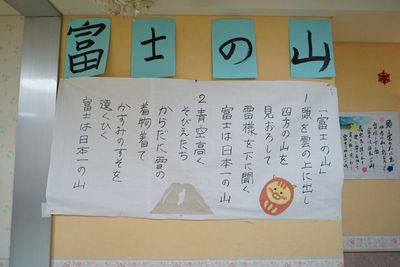 富士の山
「富士の山」
1 頭を雲の上に出し
四方の山を
見おろして
雷様を下に聞く
富士は日本一の山
2 青空高く
そびえたち
からだに雪の
着物着て
かすみのすそを
遠くひく
富士は日本一の山